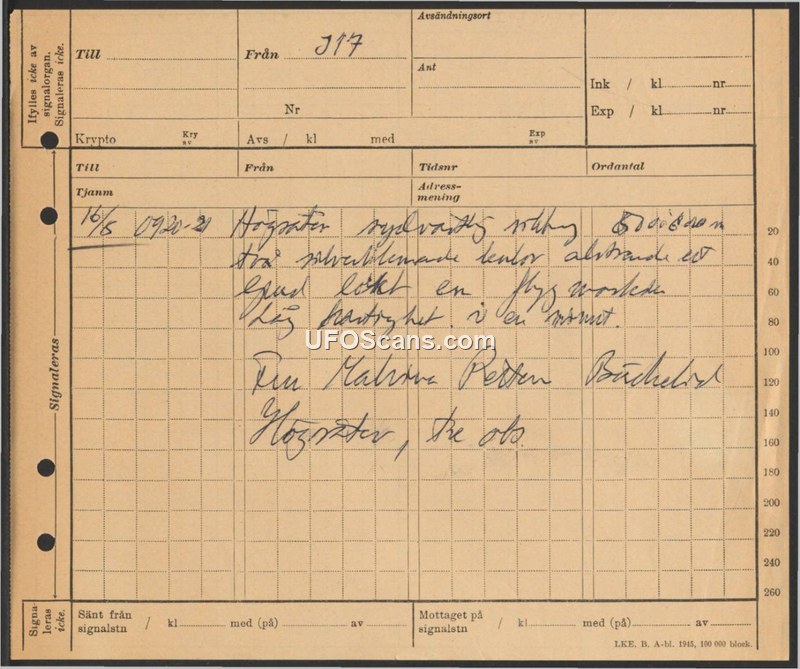 Ifylles icke av
signalorgan.
Signaleras icke.
Till
Från J17
Nr
Krypto Kry av
Avs / kl med Exp av
Avsändningsort
Ant
Ink / kl nr
Exp / kl nr
Till Från Tidsnr Ordantal
Tjanm Adress-
mening
16/8 0920-21 Högsäter sydvästlig riktng
två silverblänkande kulor alstrande ett
ljud likt en flyg
Låg hastighet. i en minut.
UFOScans.com
Fru
Högsäter, tre obs.
20
40
60
80
100
120
140
160
180
200
220
240
260
Signaleras
Signa-
leras
icke.
Sänt från
signalstn / kl med (på) av
Mottaget på
signalstn / kl med (på) av
LKE, B, A-bl. 1945, 100 000 block.